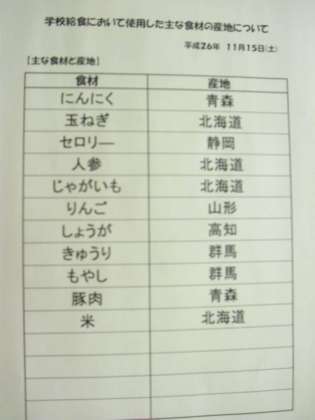 学校給食において使用した主な食材の産地について
平成26年 11月15日(土)
[主な食材と産地]
食材 産地
にんにく 青森
玉ねぎ 北海道
セロリー 静岡
人参 北海道
じゃがいも 北海道
りんご 山形
しょうが 高知
きゅうり 群馬
もやし 群馬
豚肉 青森
米 北海道